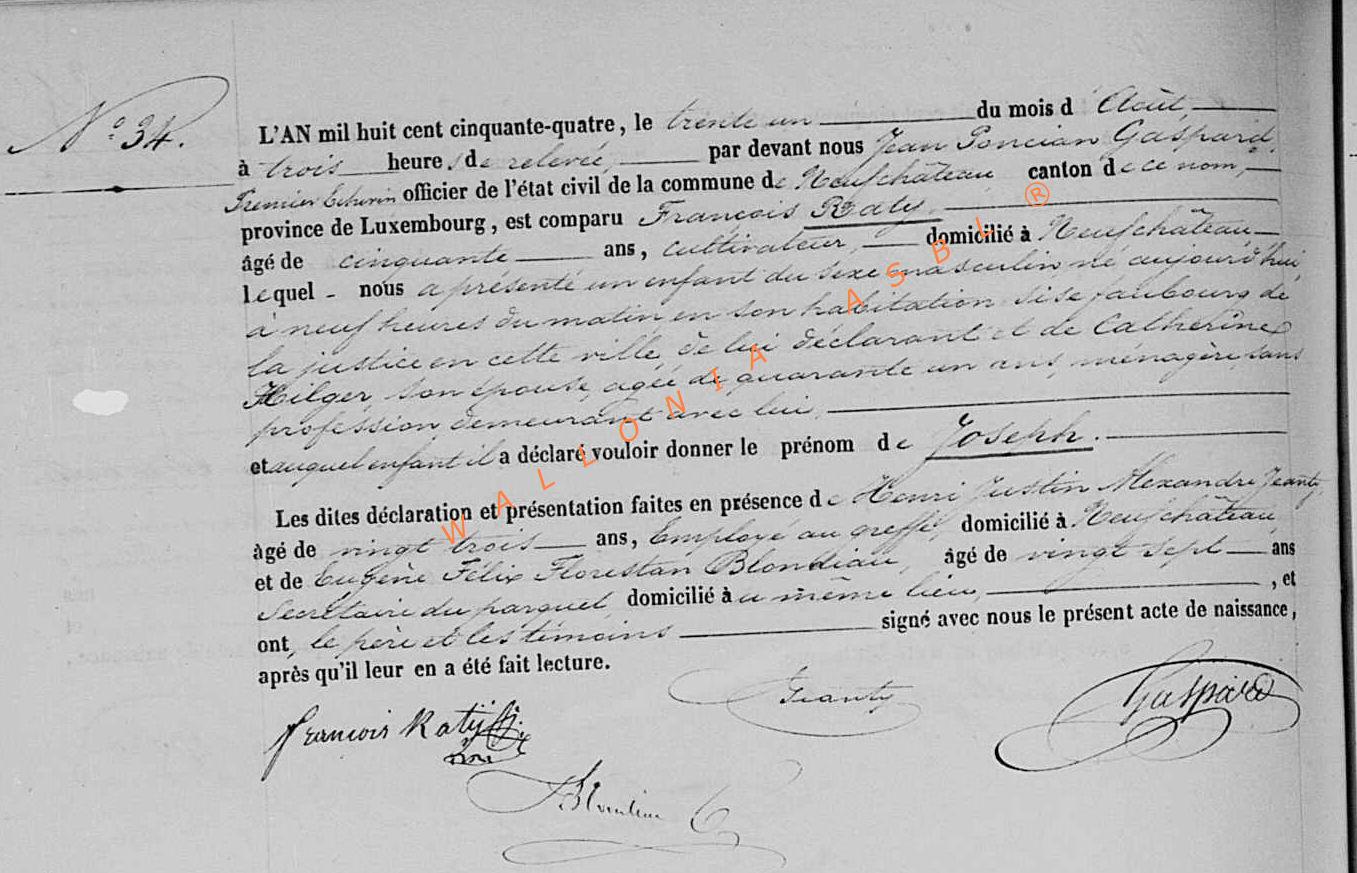 N° 34.
L'AN mil huit cent cinquante-quatre, le trente un du mois d'Août,
à trois heures de relevée, par devant nous Jean Poncian Gaspard,
Premier Echevin officier de l'état civil de la commune de Neufchâteau canton de ce nom,
province de Luxembourg, est comparu François Raty.
âgé de cinquante ans, cultivateur, domicilié à Neufchâteau
lequel - nous a présenté un enfant du sexe masculin né aujourd'hui,
à neuf heures du matin en son habitation sise faubourg de
la justice en cette ville, de lui déclarant et de Catherine
Hilger, son épouse, agée de quarante un ans, ménagère, sans
profession, demeurant avec lui,
et auquel enfant il a déclaré vouloir donner le prénom de Joseph.
Les dites déclaration et présentation faites en présence de Henri Justin Alexandre Jeanty,
âgé de vingt trois ans, Employé au greffe, domicilié à Neufchâteau,
et de Eugène Félix Florestan Blondiau, âgé de vingt sept ans
Secrétaire du parquet domicilié au même lieu, , et
ont, le père et les témoins signé avec nous le présent acte de naissance,
après qu'il leur en a été fait lecture.
Jeanty
Gaspard
francois Raty
WALLONIA ASBL ®